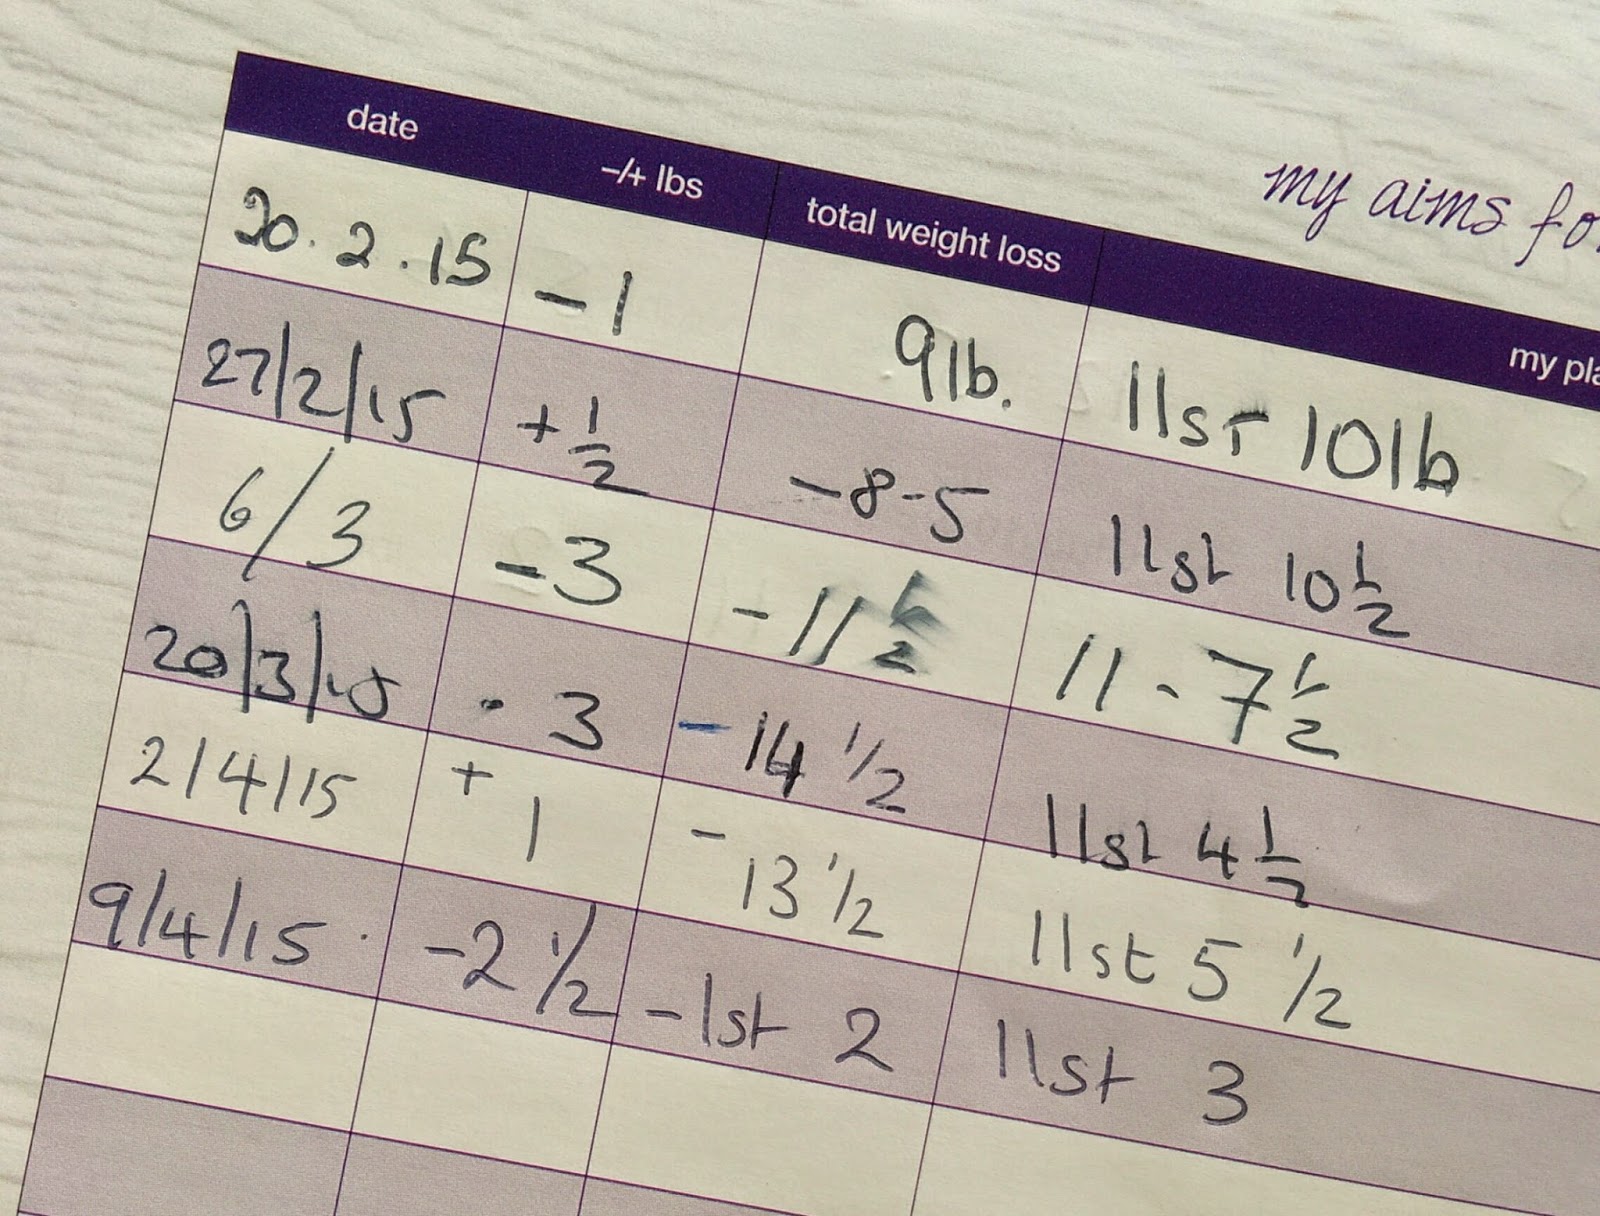 my aims fo
date -/+ lbs total weight loss my pla
20.2.15 -1 9lb. 11st 10lb
27/2/15 +1/2 -8-5 11st 10 1/2
6/3 -3 -11 1/2 11-7 1/2
20/3/15 -3 -14 1/2 11st 4 1/2
2/4/15 +1 -13 1/2 11st 5 1/2
9/4/15 -2 1/2 -1st 2 11st 3